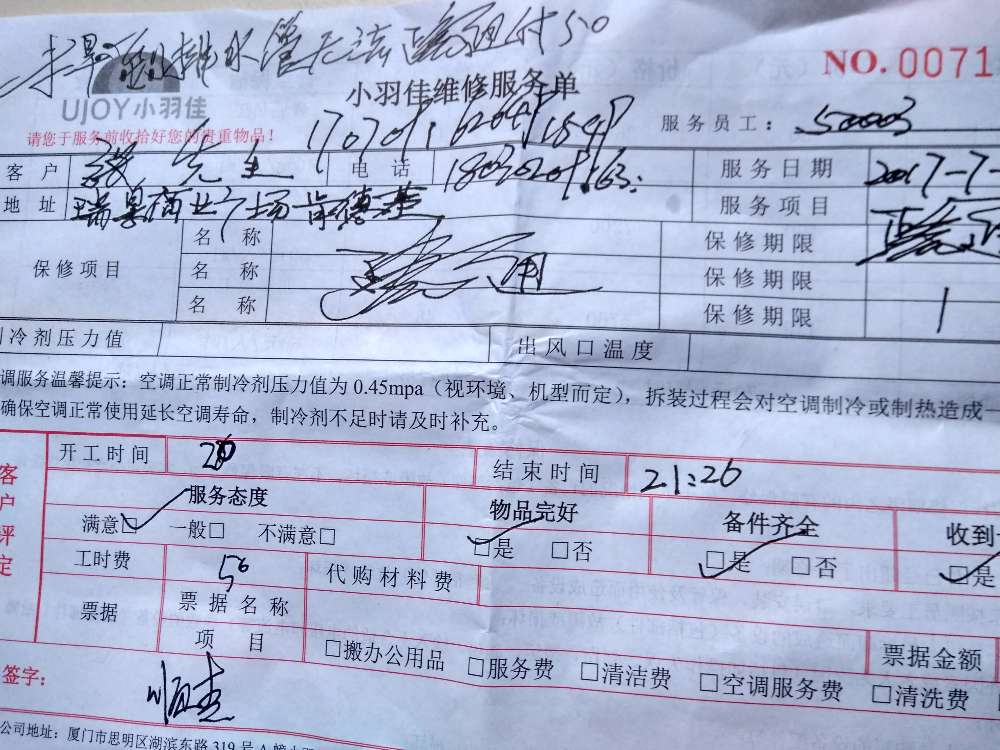 排水管无法 付50
NO. 0071
UJOY小羽佳
小羽佳维修服务单
请您于服务前收拾好您的贵重物品!
服务员工: 50003
客户 先生 电话 服务日期 2017-7-
地址 瑞景商业广场肯德基 服务项目
保修项目 名称 保修期限
名称 保修期限
名称 保修期限 1
冷剂压力值 出风口温度
调服务温馨提示:空调正常制冷剂压力值为 0.45mpa(视环境、机型而定),拆装过程会对空调制冷或制热造成一
确保空调正常使用延长空调寿命,制冷剂不足时请及时补充。
客户评定
开工时间 结束时间 21:26
服务态度 物品完好 备件齐全 收到
满意□ 一般□ 不满意□ □是 □否 □是 □否 □是
工时费 50 代购材料费
票据 票据名称
项目 □搬办公用品 □服务费 □清洁费 □空调服务费 □清洗费 票据金额
签字:
公司地址:厦门市思明区湖滨东路 319 号 A